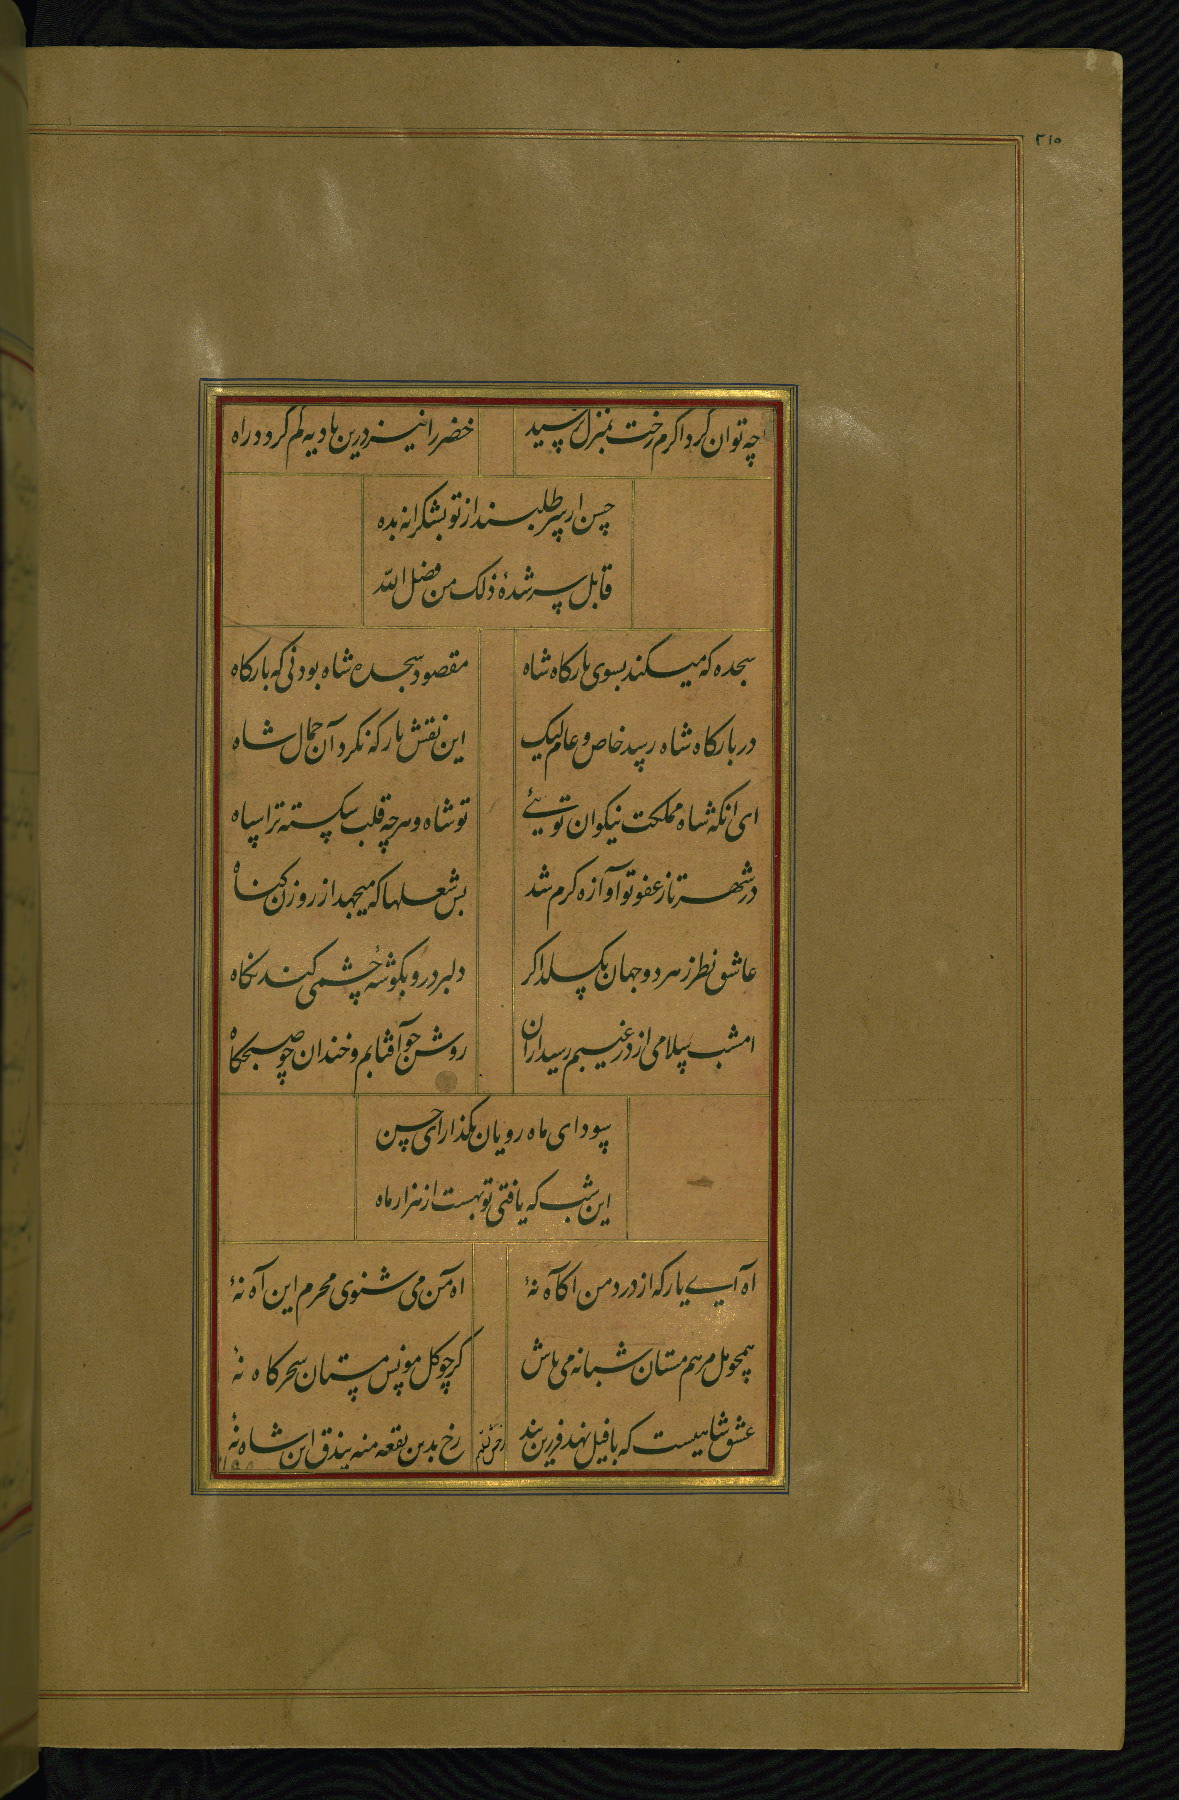 ۲۱۵
چه توان کرد اکرم رخت بمنزل نرسید خضر را نیز درین بادیه کم کردد راه
حسن ار سر طلبند از تو بشکرانه بده
قابل سر شدهٔ ذلک من فضل الله
سجده که میکند بسوی بارکاه شاه مقصود سجده شاه بود نی که بارکاه
در بارکاه شاه رسید خاص و عام لیک این نقش بار که نکرد آن جمال شاه
ای انکه شاه مملکت نیکوان توییٔ تو شاه و هرچه قلب شکسته ترا سپاه
در شهر تا ز عفو تو آوازه کرم شد بس شعلها که میجهد از روزن کناه
عاشق نظر ز هر دو جهان بکسلد اکر دلبر درو بکوشه چشمی کند نکاه
امشب سلامی از در غیبم رسید ازان روشن چو آفتابم و خندان چو صبحکاه
سودای ماه رویان بکذار ای حسن
این شب که یافتی تو بهست از هزار ماه
اه آیے یار که از درد من اکاه نهٔ اه من می شنوی محرم این آه نهٔ
همچو مل مرهم مستان شبانه می باش کر چو کل مونس مستان سحرکاه نهٔ
عشق شاهیست که با فیل نهد فرزین بند رخ بدین بقعه منه بیذق این شاه نهٔ